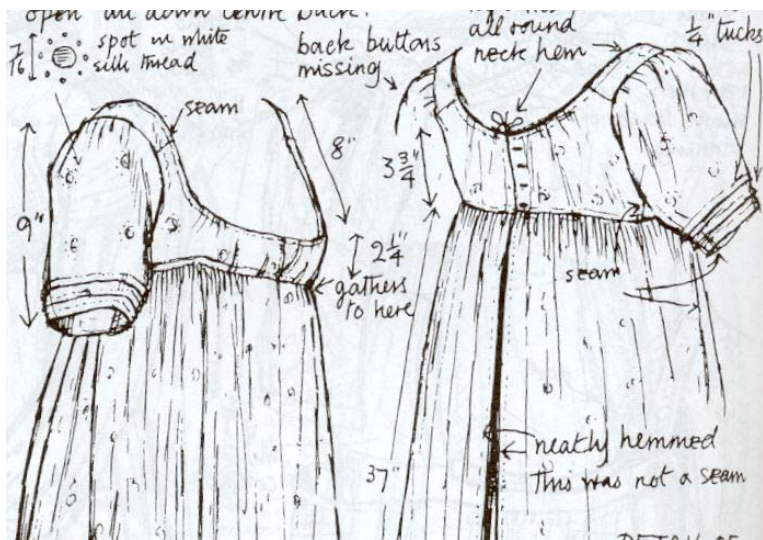 open all down centre back.
7/16 spot in white
silk thread
seam
9"
8"
2 1/4"
gathers
to here
back buttons
missing
all round
neck hem
1/4" tucks
3 3/4"
seam
37"
neatly hemmed
This was not a seam
DETAIL OF